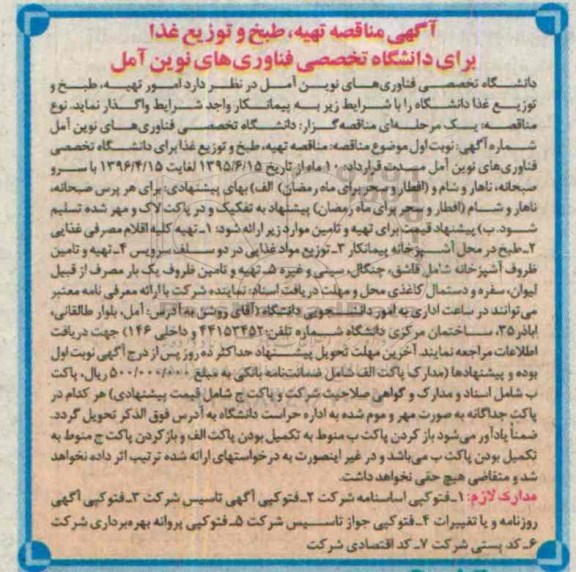 آگهی مناقصه تهیه، طبخ و توزیع غذا
برای دانشگاه تخصصی فناوری های نوین آمل
دانشگاه تخصصی فناوری‌های نوین آمل در نظر دارد امور تهیه، طبخ و
توزیع غذا دانشگاه را با شرایط زیر به پیمانکار واجد شرایط واگذار نماید. نوع
مناقصه: یک مرحله‌ای مناقصه‌گزار: دانشگاه تخصصی فناوری‌های نوین آمل
شماره آگهی: نوبت اول موضوع مناقصه: مناقصه تهیه، طبخ و توزیع غذا برای دانشگاه تخصصی
فناوری‌های نوین آمل مدت قرارداد: ۱۰ ماه از تاریخ ۱۳۹۵/۶/۱۵ لغایت ۱۳۹۶/۴/۱۵ با سرو
صبحانه، ناهار و شام و (افطار و سحر برای ماه رمضان) الف) بهای پیشنهادی: برای هر پرس صبحانه،
ناهار و شام (افطار و سحر برای ماه رمضان) پیشنهاد به تفکیک و در پاکت لاک و مهر شده تسلیم
شود. ب) پیشنهاد قیمت برای تهیه و تامین موارد زیر ارائه شود: ۱_ تهیه کلیه اقلام مصرفی غذایی
۲_ طبخ در محل آشپزخانه پیمانکار ۳_ توزیع مواد غذایی در دو سلف سرویس ۴_ تهیه و تامین
ظروف آشپزخانه شامل قاشق، چنگال، سینی و غیره ۵_ تهیه و تامین ظروف یک بار مصرف از قبیل
لیوان، سفره و دستمال کاغذی محل و مهلت دریافت اسناد: نماینده شرکت با ارائه معرفی نامه معتبر
می‌توانند در ساعت اداری به امور دانشجویی دانشگاه (آقای روشن به آدرس: آمل، بلوار طالقانی،
اباذر ۳۵، ساختمان مرکزی دانشگاه شماره تلفن: ۴۴۱۵۳۴۵۲ و داخلی ۱۴۶) جهت دریافت
اطلاعات مراجعه نمایند. آخرین مهلت تحویل پیشنهاد حداکثر ده روز پس از درج آگهی نوبت اول
بوده و پیشنهادها (مدارک پاکت الف شامل ضمانتنامه بانکی به مبلغ ۵۰۰/۰۰۰/۰۰۰ ریال، پاکت
ب شامل اسناد و مدارک و گواهی صلاحیت شرکت و پاکت ج شامل قیمت پیشنهادی) هر کدام در
پاکت جداگانه به صورت مهر و موم شده به اداره حراست دانشگاه به آدرس فوق الذکر تحویل گردد.
ضمناً یادآور می‌شود باز کردن پاکت ب منوط به تکمیل بودن پاکت الف و باز کردن پاکت ج منوط به
تکمیل بودن پاکت ب می‌باشد و در غیر اینصورت به درخواستهای ارائه شده ترتیب اثر داده نخواهد
شد و متقاضی هیچ حقی نخواهد داشت.
مدارک لازم: ۱_ فتوکپی اساسنامه شرکت ۲_ فتوکپی آگهی تاسیس شرکت ۳_ فتوکپی آگهی
روزنامه و یا تغییرات ۴_ فتوکپی جواز تاسیس شرکت ۵_ فتوکپی پروانه بهره‌برداری شرکت
۶_ کد پستی شرکت ۷_ کد اقتصادی شرکت